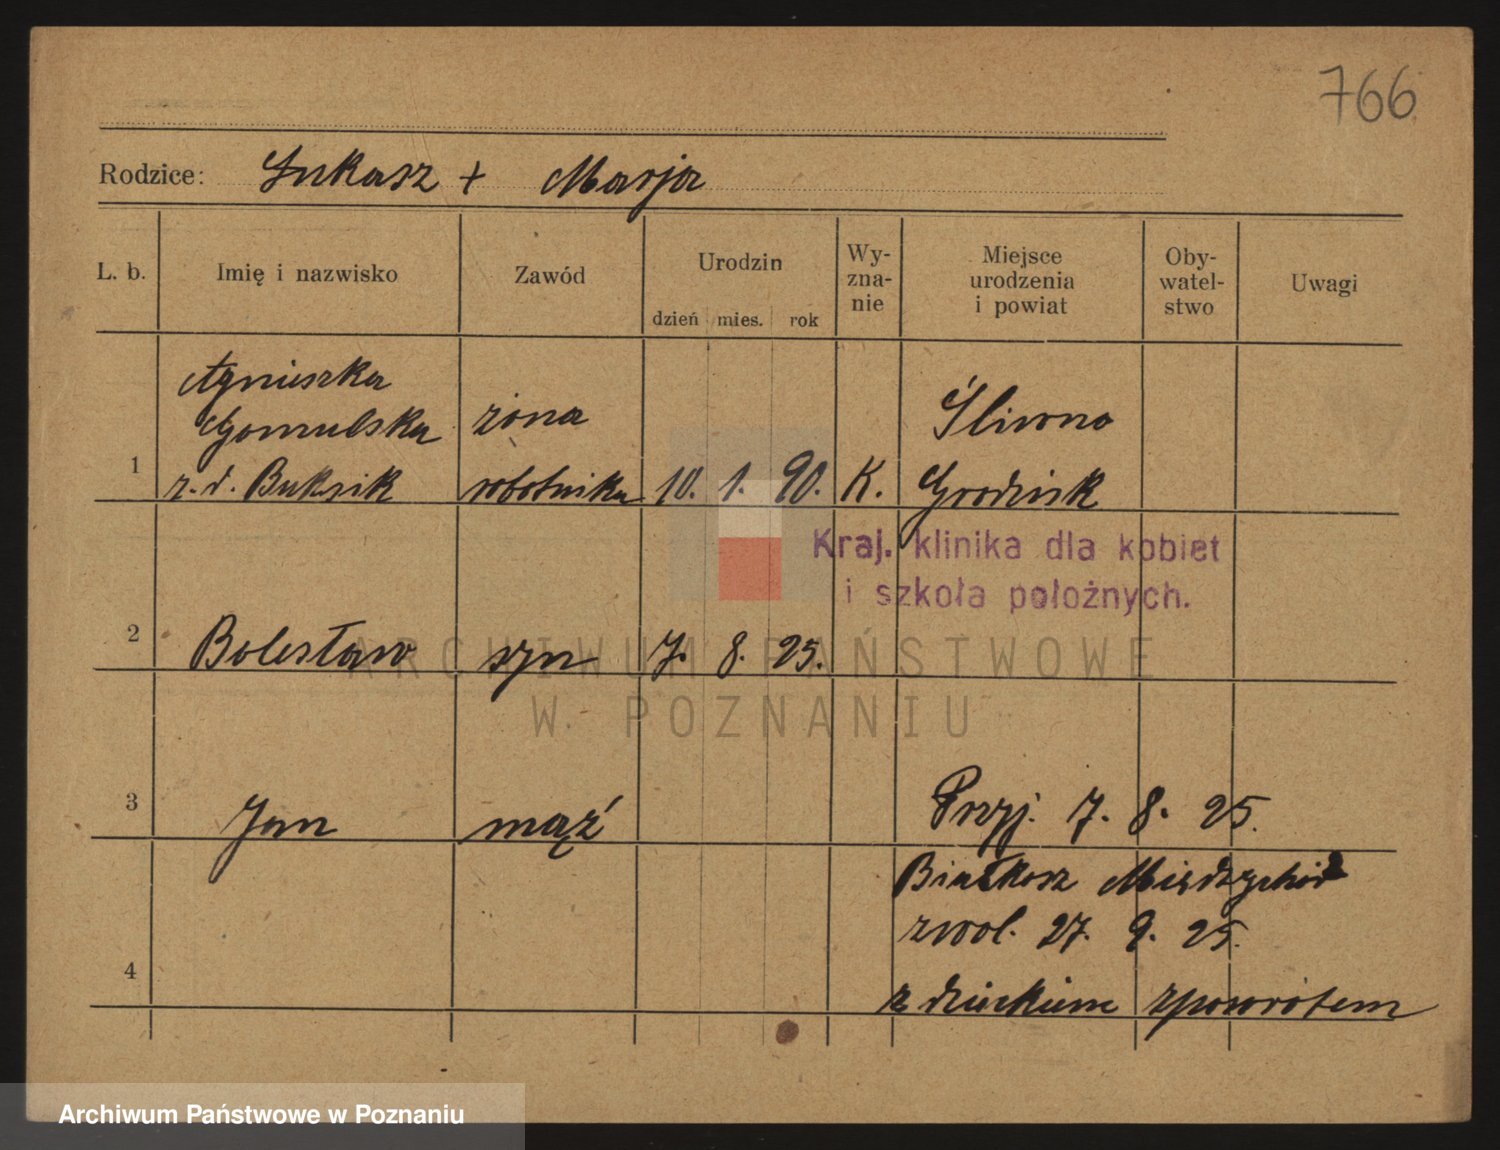 766
Rodzice: Łukasz + Marja
L. b. Imię i nazwisko Zawód Urodzin dzień mies. rok Wy-zna-nie Miejsce urodzenia i powiat Oby-watel-stwo Uwagi
Agnieszka
Gomulska żona Śliwno
1 z. d. Buksik robotnika 10. 1. 90. K. Grodzisk
Kraj. klinika dla kobiet
i szkoła położnych.
2 Bolesław syn 7. 8. 25.
ARCHIWUM PAŃSTWOWE
W POZNANIU
3 Jan mąż Przyj. 7. 8. 25.
Białkosz Międzychód
zwol. 27. 9. 25.
4 z dzieckiem zpowrotem
Archiwum Państwowe w Poznaniu